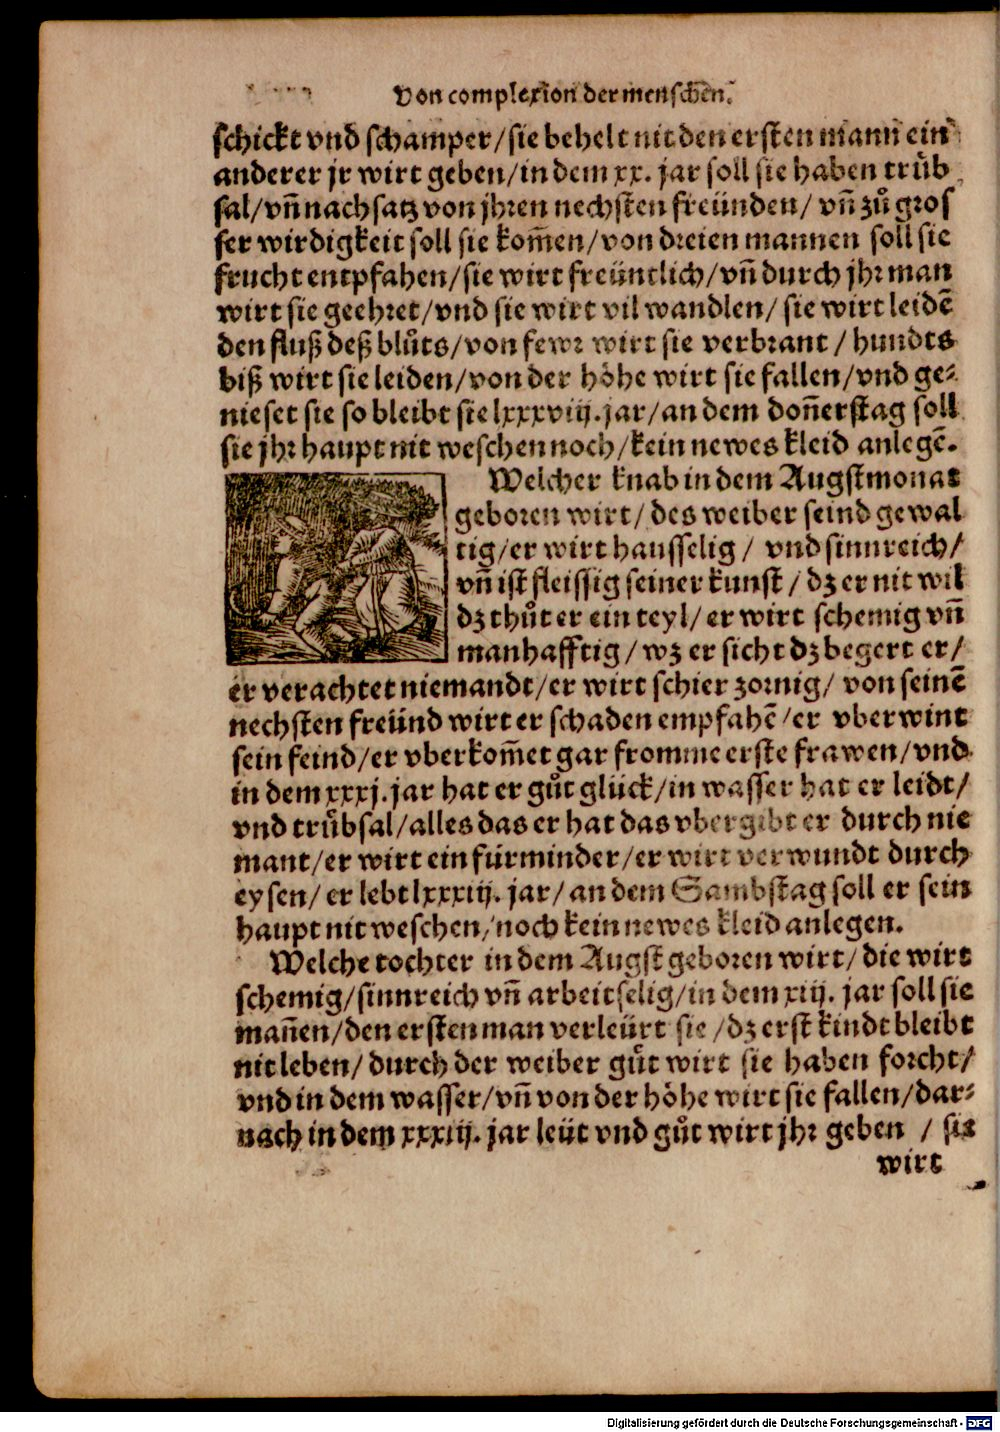 Von complexion der menschen.
schickt vnd schamper/sie behelt nit den ersten mann ein
anderer jr wirt geben/in dem xx. jar soll sie haben truͤb
sal/vñ nachsatz von jhren nechsten freünden/ vñ zuͦ gros
ser wirdigkeit soll sie kom̃en/von dreien mannen soll sie
frucht entpfahen/sie wirt freüntlich/vñ durch jhr man
wirt sie geehret/vnd sie wirt vil wandlen/ sie wirt leidẽ
den fluß deß bluͦts/von fewr wirt sie verbrant / hundts
biß wirt sie leiden/von der hoͤhe wirt sie fallen/vnd ge⸗
nieset sie so bleibt sie lxxxviij. jar/an dem don̄erstag soll
sie jhr haupt nit weschen noch/kein newes kleid anlegẽ.
Welcher knab in dem Augstmonat
geboren wirt/ des weiber seind gewal
tig/er wirt hausselig / vnd sinnreich/
vñ ist fleissig seiner kunst / dz er nit wil
dz thuͦt er ein teyl/ er wirt schemig vñ
manhafftig/ wz er sicht dz begert er/
er verachtet niemandt/er wirt schier zornig/ von seinẽ
nechsten freünd wirt er schaden empfahẽ/er vberwint
sein feind/er vberkom̃et gar fromme erste frawen/vnd
in dem xxxj. jar hat er guͦt glück/in wasser hat er leidt/
vnd truͤbsal/alles das er hat das vbergibt er durch nie
mant/er wirt ein fürminder/er wirt verwundt durch
eysen/ er lebt lxxxiij. jar/ an dem Sambstag soll er sein
haupt nit weschen/noch kein newes kleid anlegen.
Welche tochter in dem Augst geboren wirt/ die wirt
schemig/sinnreich vñ arbeitselig/in dem xiij. jar soll sie
mañen/den ersten man verleürt sie /dz erst kindt bleibt
nit leben/ durch der weiber guͦt wirt sie haben forcht/
vnd in dem wasser/vñ von der hoͤhe wirt sie fallen/dar⸗
nach in dem xxxiij. jar leüt vnd guͦt wirt jhr geben / sie
wirt
Digitalisierung gefördert durch die Deutsche Forschungsgemeinschaft - DFG